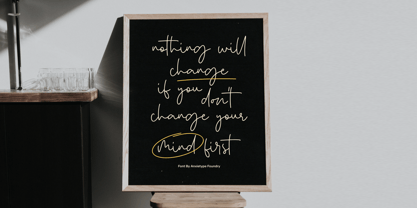 nothing will
change
if you don't
change your
mind first
Font By Arcetype Foundry